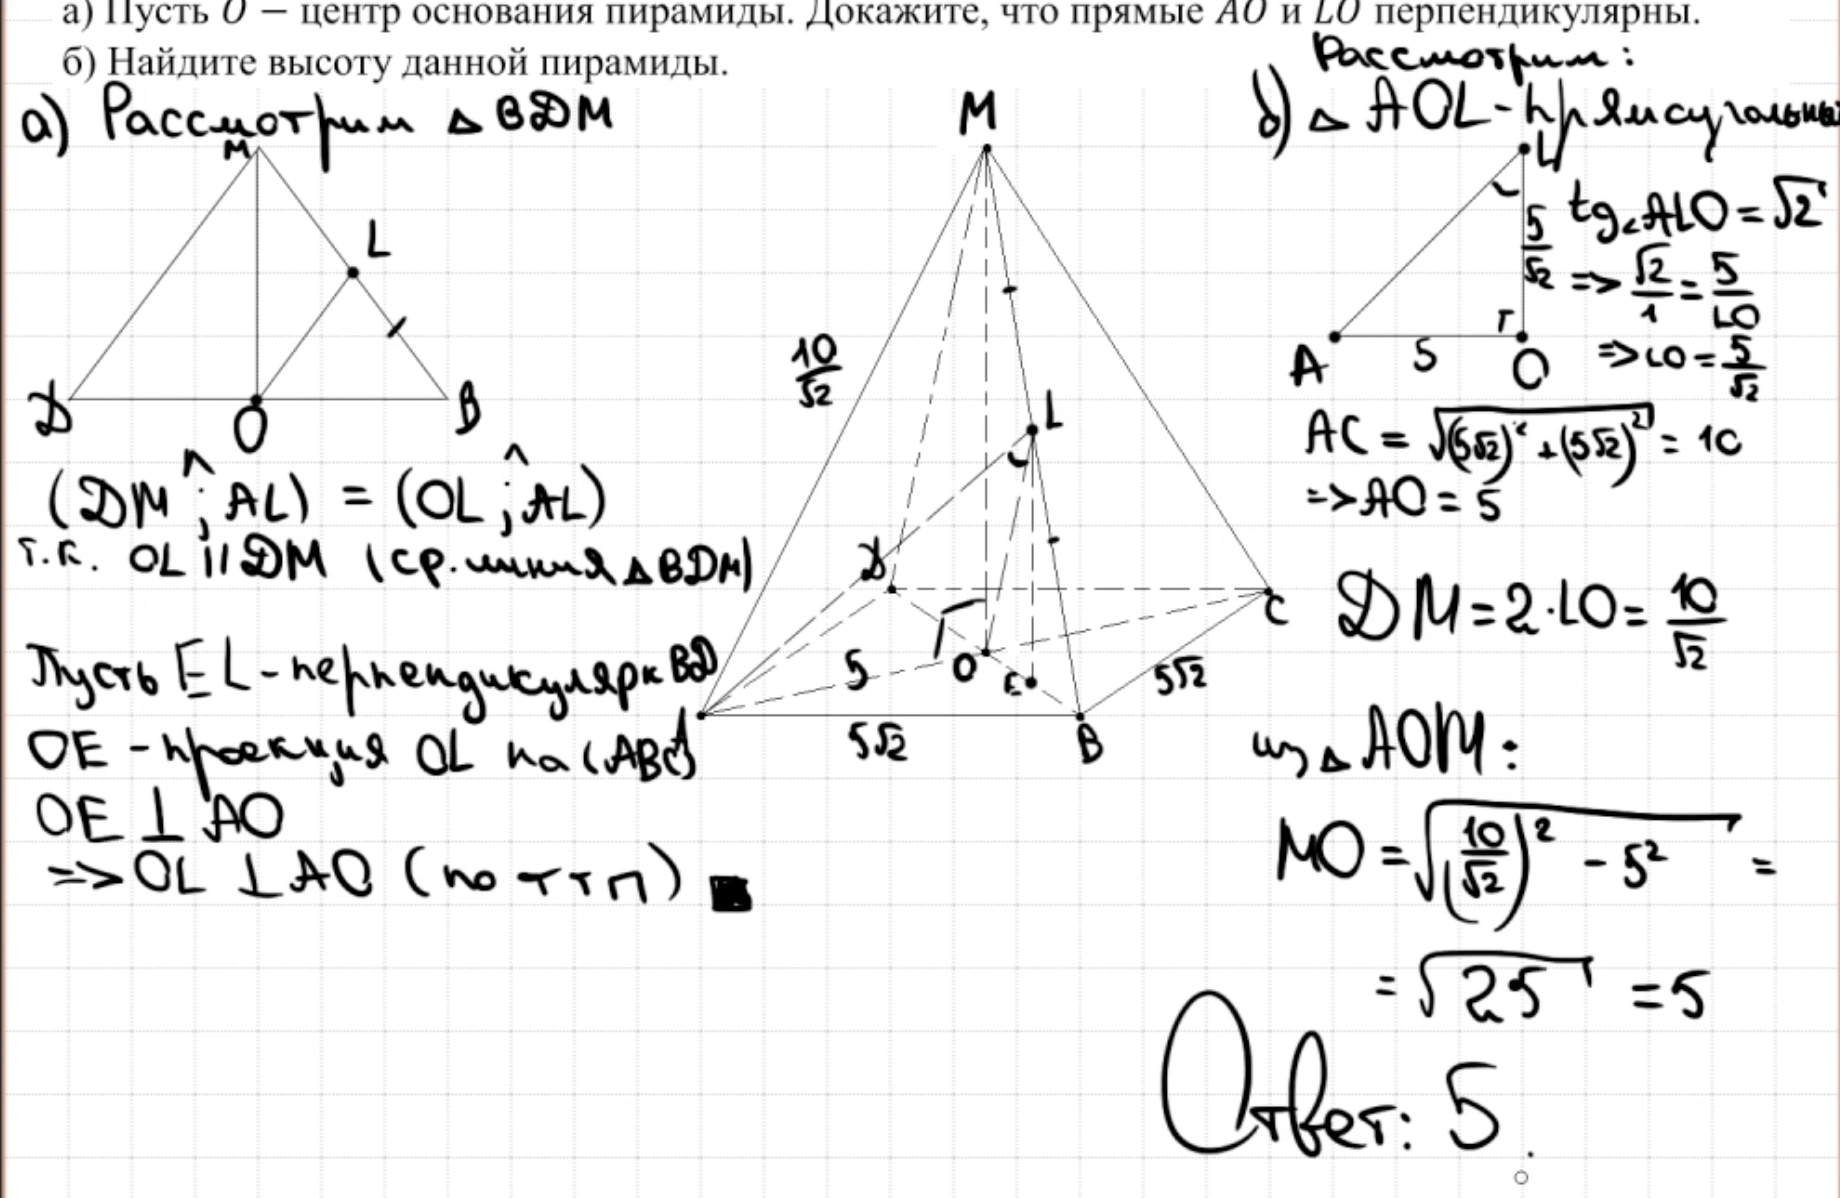 а) Пусть O — центр основания пирамиды. Докажите, что прямые AO и LO перпендикулярны.
б) Найдите высоту данной пирамиды.
а) Рассмотрим △ BDM
M
L
D
O
B
(DM ; AL) = (OL ; AL)
т.к. OL || DM (ср. линия △BDM)
Пусть EL - перпендикуляр к BD
OE - проекция OL на (ABC)
OE ⊥ AO
=> OL ⊥ AO (по ттп)
M
10/√2
L
D
C
5
O
E
5√2
A
5√2
B
Рассмотрим:
б) △ AOL - прямоугольный
L
5/√2
A
5
O
tg∠ALO = √2
=> √2/1 = 5/LO
=> LO = 5/√2
AC = √((5√2)² + (5√2)²) = 10
=> AO = 5
DM = 2·LO = 10/√2
из △ AOM:
MO = √((10/√2)² - 5²) =
= √25 = 5
Ответ: 5.